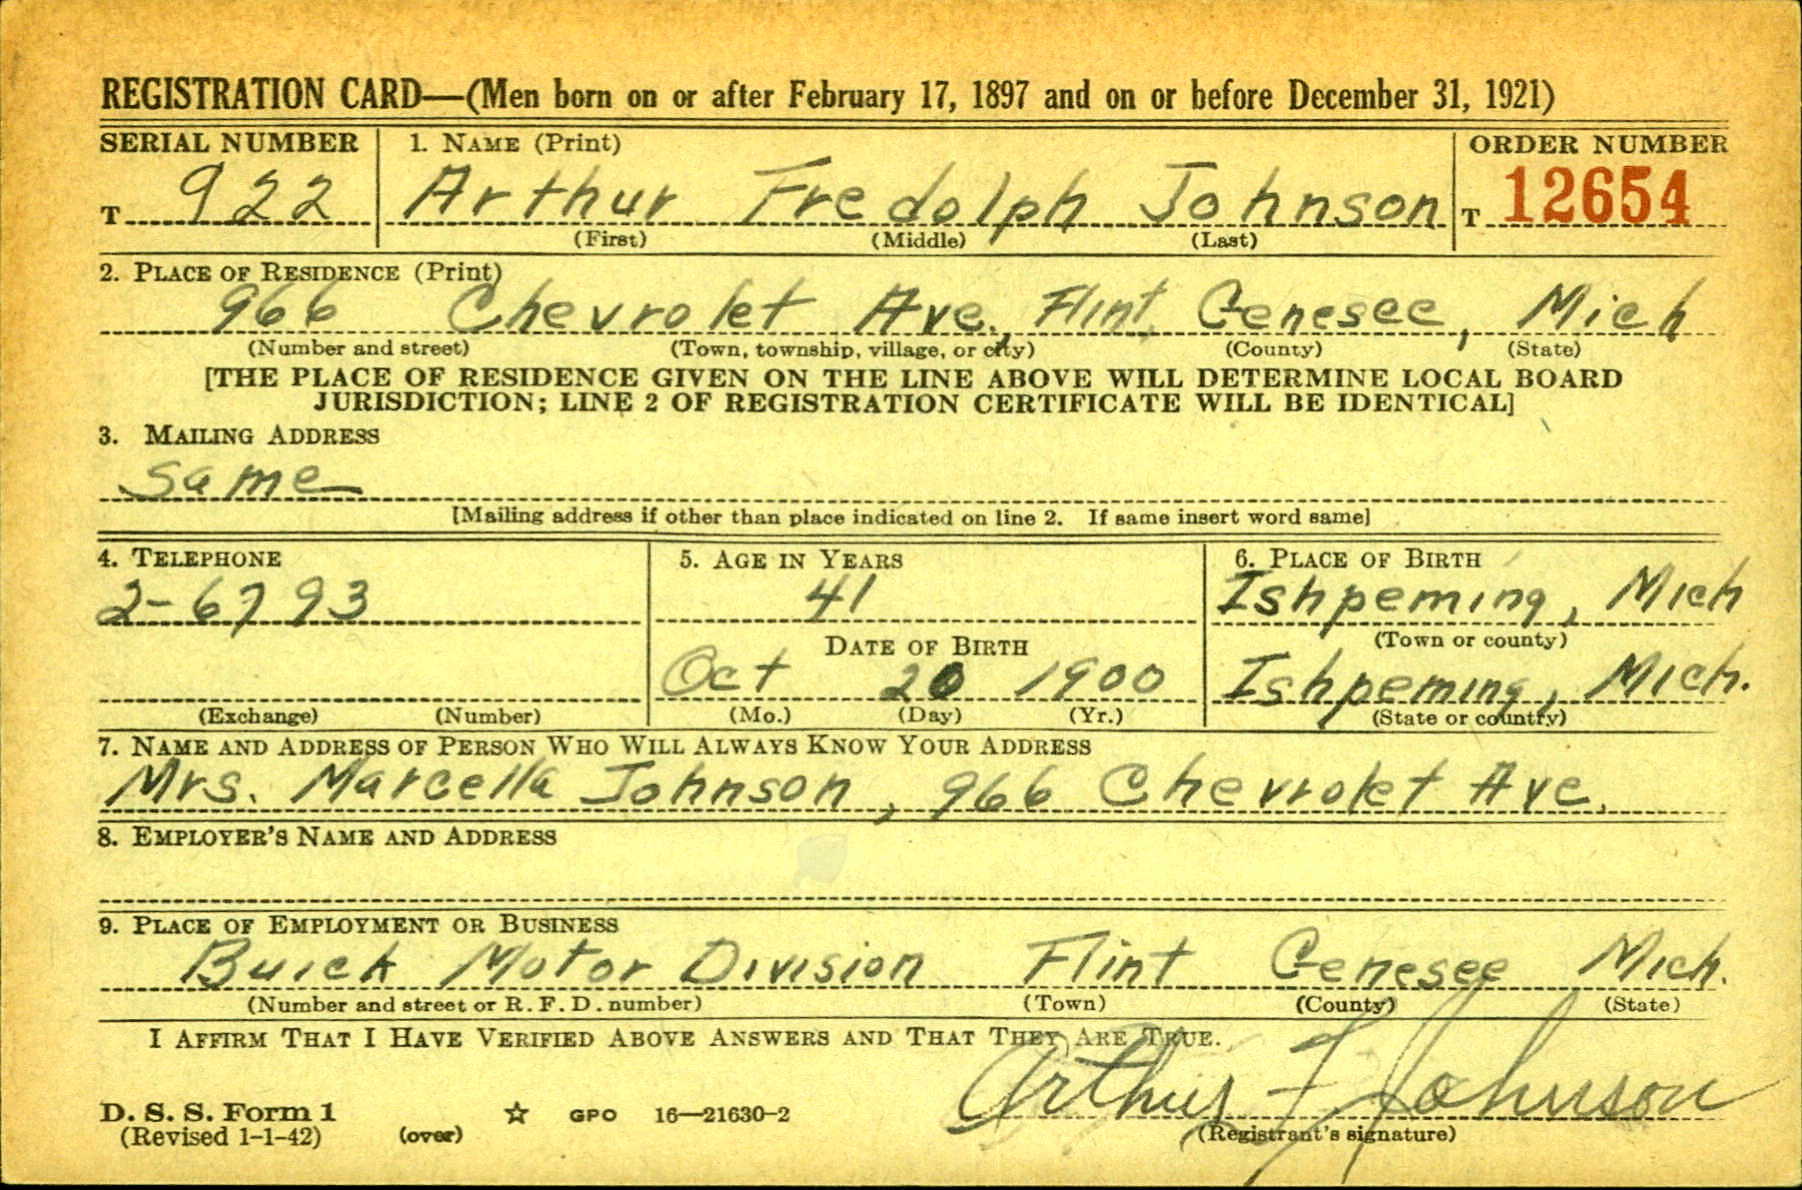 REGISTRATION CARD—(Men born on or after February 17, 1897 and on or before December 31, 1921)
SERIAL NUMBER 1. NAME (Print) ORDER NUMBER
T 922 Arthur Fredolph Johnson T 12654
(First) (Middle) (Last)
2. PLACE OF RESIDENCE (Print)
966 Chevrolet Ave., Flint, Genesee, Mich
(Number and street) (Town, township, village, or city) (County) (State)
[THE PLACE OF RESIDENCE GIVEN ON THE LINE ABOVE WILL DETERMINE LOCAL BOARD
JURISDICTION; LINE 2 OF REGISTRATION CERTIFICATE WILL BE IDENTICAL]
3. MAILING ADDRESS
Same
[Mailing address if other than place indicated on line 2. If same insert word same]
4. TELEPHONE 5. AGE IN YEARS 6. PLACE OF BIRTH
2-6793 41 Ishpeming, Mich
DATE OF BIRTH (Town or county)
Oct 20 1900 Ishpeming, Mich.
(Exchange) (Number) (Mo.) (Day) (Yr.) (State or country)
7. NAME AND ADDRESS OF PERSON WHO WILL ALWAYS KNOW YOUR ADDRESS
Mrs. Marcella Johnson, 966 Chevrolet Ave.
8. EMPLOYER'S NAME AND ADDRESS
9. PLACE OF EMPLOYMENT OR BUSINESS
Buick Motor Division Flint Genesee Mich.
(Number and street or R. F. D. number) (Town) (County) (State)
I AFFIRM THAT I HAVE VERIFIED ABOVE ANSWERS AND THAT THEY ARE TRUE.
Arthur F Johnson
D. S. S. Form 1 ☆ GPO 16—21630-2
(Revised 1-1-42) (over) (Registrant's signature)